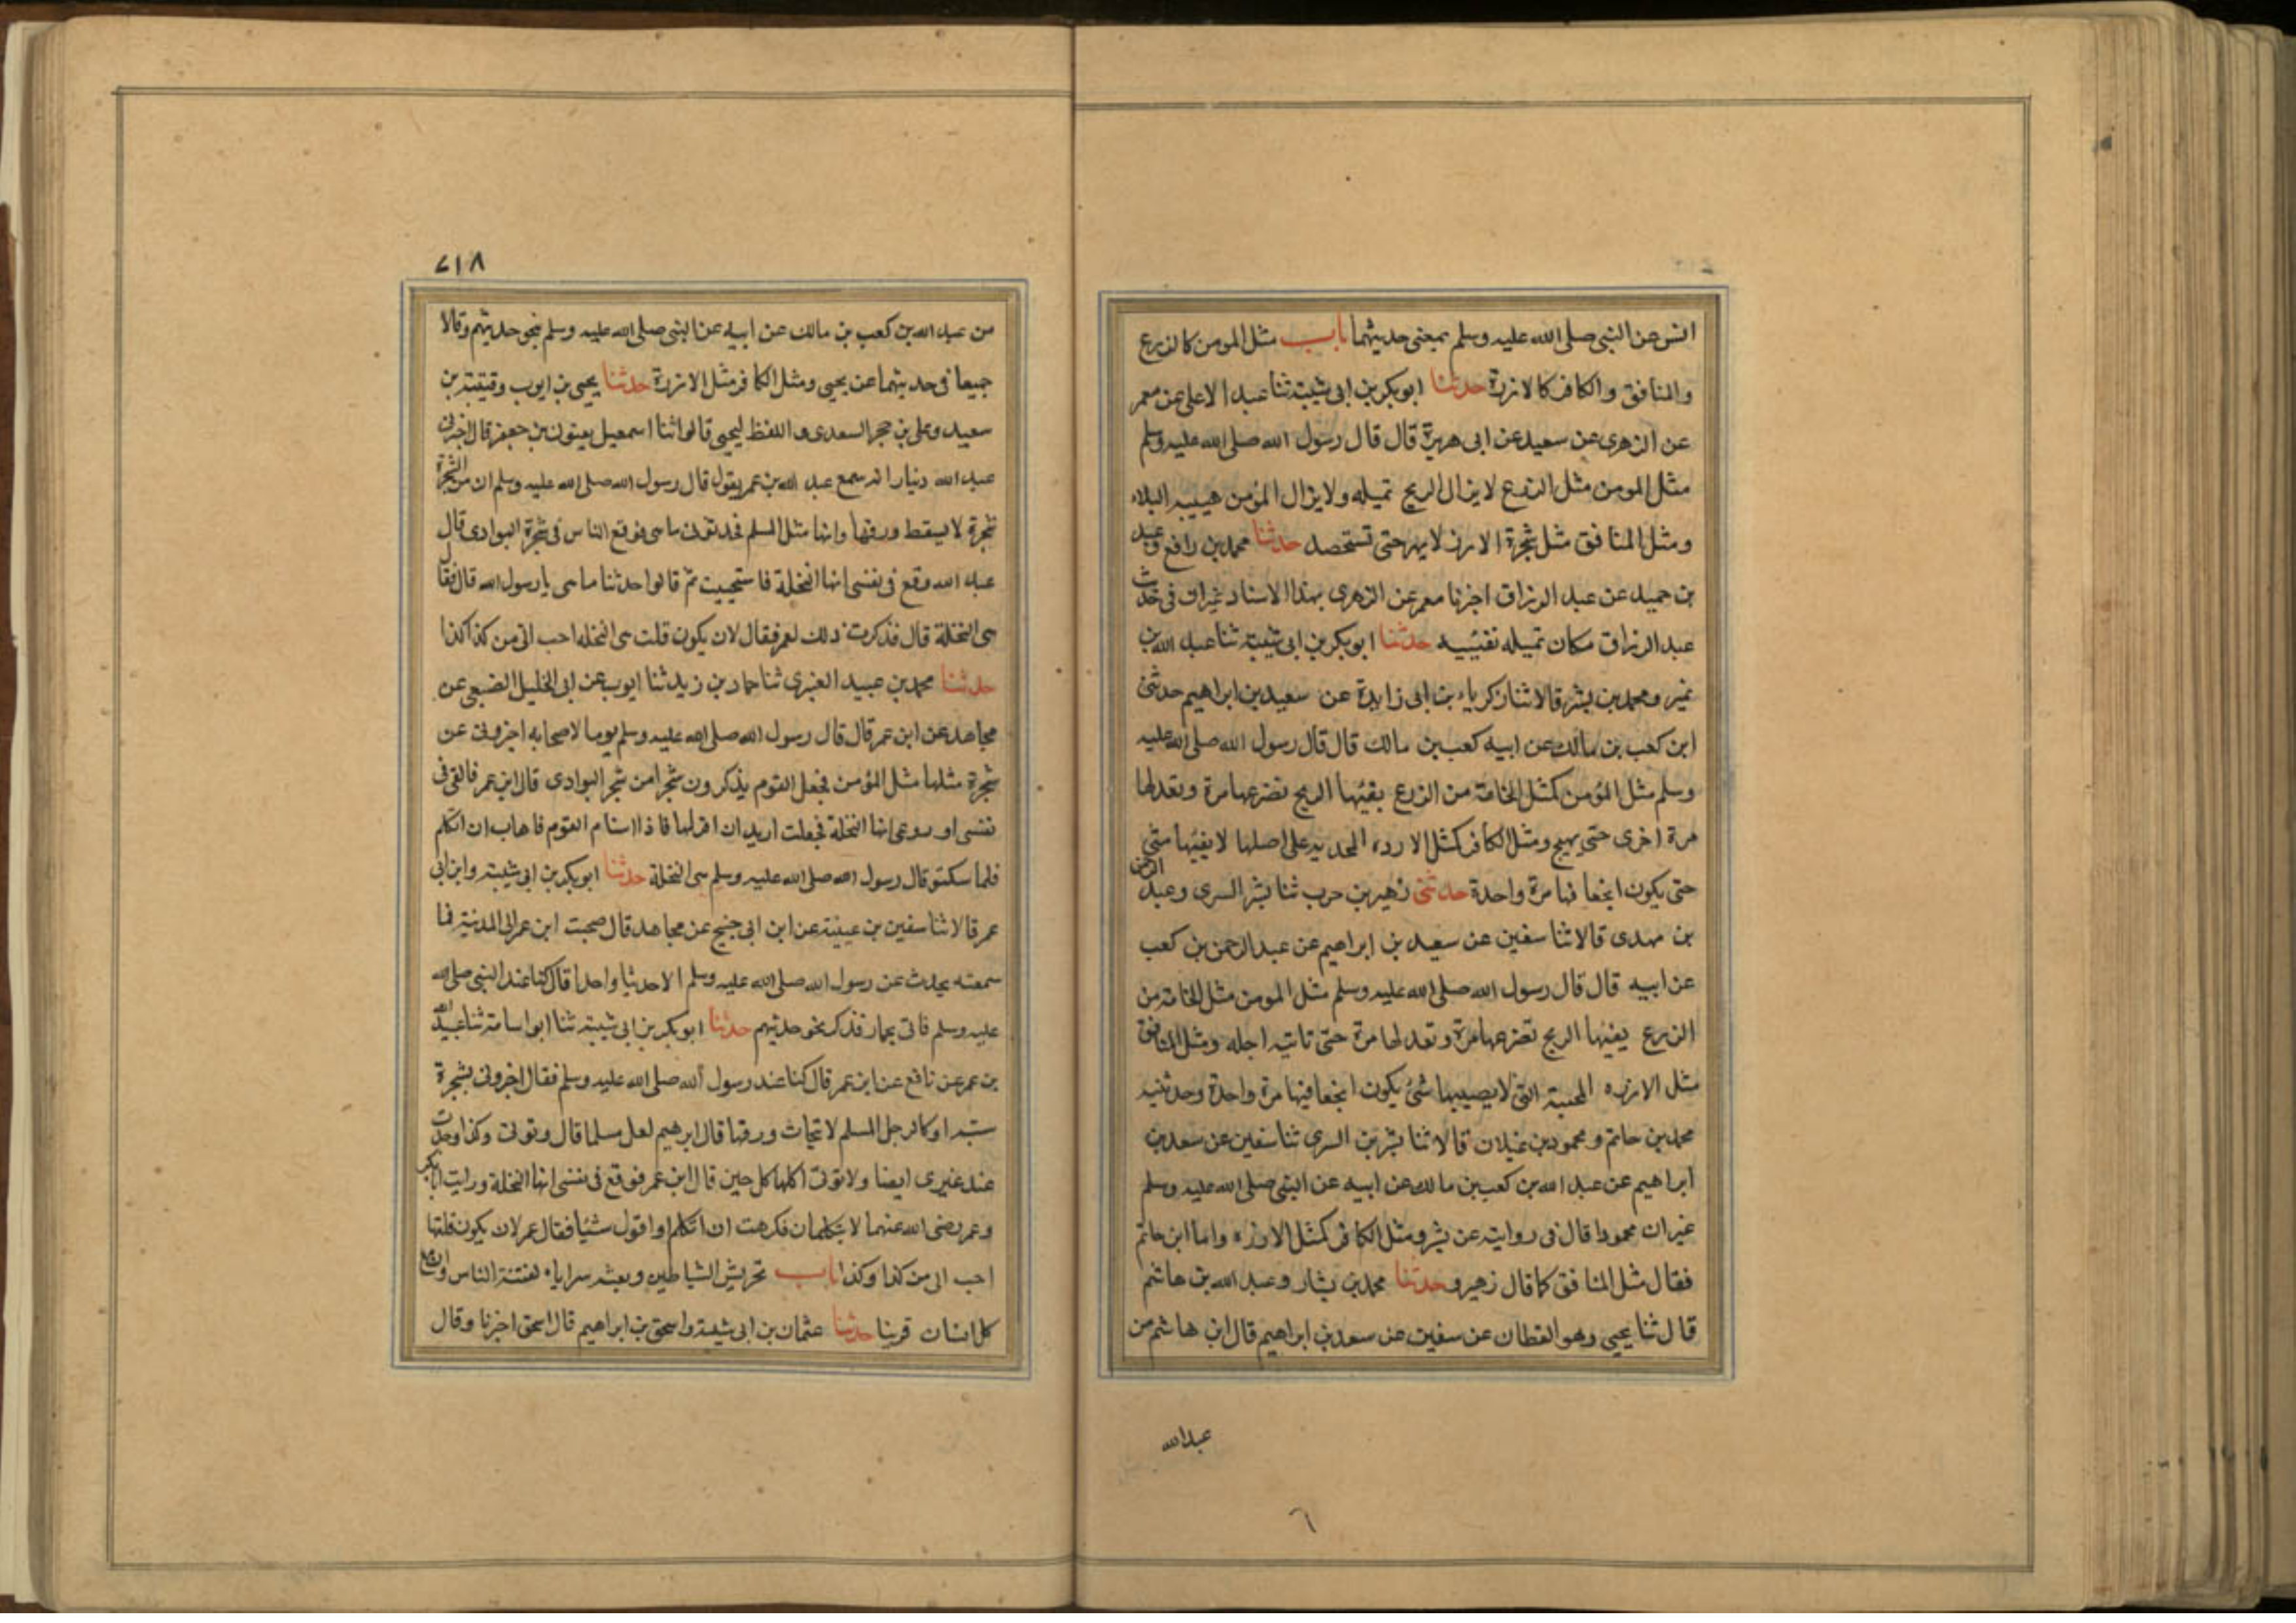 انس عن النبى صلى الله عليه وسلم بمعنى حديثهما باب مثل المومن كالزرع
والمنافق والكافر كالارزة حدثنا ابو بكر بن ابى شيبة ثنا عبد الاعلى عن معمر
عن الزهرى عن سعيد عن ابى هريرة قال قال رسول الله صلى الله عليه وسلم
مثل المومن مثل الزرع لا يزال الريح تميله ولا يزال المؤمن يصيبه البلاء
ومثل المنافق مثل شجرة الارز لا تهتز حتى تستحصد حدثنا محمد بن رافع وعبد
بن حميد عن عبد الرزاق اخبرنا معمر عن الزهرى بهذا الاسناد غيران فى حديث
عبد الرزاق مكان تميله تفيئه حدثنا ابو بكر بن ابى شيبة ثنا عبد الله بن
نمير ومحمد بن بشر قالا ثنا زكرياء بن ابى زايدة عن سعيد بن ابراهيم حدثنى
ابن كعب بن مالك عن ابيه كعب بن مالك قال قال رسول الله صلى الله عليه
وسلم مثل المؤمن كمثل الخامة من الزرع يفيئها الريح تصرعها مرة وتعدلها
مرة اخرى حتى يهيج ومثل الكافر كمثل الارزه المجديه على اصلها لا يفيئها شئ
حتى يكون انجعافها مرة واحدة حدثنى زهير بن حرب ثنا بشر السرى وعبد الرحمن
بن مهدى قالا ثنا سفين عن سعيد بن ابراهيم عن عبد الرحمن بن كعب
عن ابيه قال قال رسول الله صلى الله عليه وسلم مثل المومن مثل الخامة من
الزرع يفيئها الريح تصرعها مرة وتعدلها مرة حتى تاتيه اجله ومثل المنافق
مثل الارزه المجبة التى لا يصيبها شئ يكون انجعافيها مرة واحدة وحدثنيه
محمد بن حاتم ومحمود بن غيلان قالا ثنا بشر بن السرى ثنا سفين عن سعد بن
ابراهيم عن عبد الله بن كعب بن مالك عن ابيه عن النبى صلى الله عليه وسلم
غيران محمودا قال فى روايته عن بشر ومثل الكافر كمثل الارزه واما ابن حاتم
فقال مثل المنافق كما قال زهير وحدثنا محمد بن بشار وعبد الله بن هاشم
قال ثنا يحيى وهو القطان عن سفين عن سعد بن ابراهيم قال ابن هاشم من
عبد الله
٦
٧١٨
من عبد الله بن كعب بن مالك عن ابيه عن النبى صلى الله عليه وسلم نحو حديثهم وقالا
جميعا فى حديثهما عن يحيى ومثل الكافر مثل الارزة حدثنا يحيى بن ايوب وقتيبة بن
سعيد وعلى بن حجر السعدى واللفظ ليحيى قالوا ثنا اسمعيل يعنون بن جعفر قال اخبرنى
عبد الله دينار انه سمع عبد الله بن عمر يقول قال رسول الله صلى الله عليه وسلم ان من الشجرة
شجرة لا يسقط ورقها وانها مثل المسلم فحدثونى ما هى فوقع الناس فى شجرة البوادى قال
عبد الله وقع فى نفسى انها النخلة فاستحييت ثم قالوا حدثنا ما هى يا رسول الله قال فقال
هى النخلة قال فذكرت ذلك لعمر فقال لان يكون قلت هى النخله احب الى من كذا كذا
حدثنا محمد بن عبيد الغبرى ثنا حماد بن زيد ثنا ايوب عن ابى الخليل الضبعى عن
مجاهد عن ابن عمر قال قال رسول الله صلى الله عليه وسلم يوما لاصحابه اخبرونى عن
شجرة مثلها مثل المؤمن فجعل القوم يذكرون شجرا من شجر البوادى قال ابن عمر فالقى فى
نفسى او روعى انها النخلة فجعلت اريد ان اقولها فاذا اسنام القوم فاهاب ان اتكلم
فلما سكتو قال رسول الله صلى الله عليه وسلم هى النخلة حدثنا ابو بكر بن ابى شيبة وابن ابى
عمر قالا ثنا سفين بن عيينة عن ابن ابى نجيح عن مجاهد قال صحبت ابن عمر الى المدينة فما
سمعته يحدث عن رسول الله صلى الله عليه وسلم الا حديثا واحدا قال كنا عند النبى صلى الله
عليه وسلم فاتى بجمار فذكر نحو حديثهم حدثنا ابو بكر بن ابى شيبة ثنا ابو اسامة ثنا عبيد الله
بن عمر عن نافع عن ابن عمر قال كنا عند رسول الله صلى الله عليه وسلم فقال اخبرونى بشجرة
شبه او كالرجل المسلم لا تحات ورقها قال ابرهيم لعل مسلما قال وتوتى وكذا وجدت
عند غيرى ايضا ولا توتى اكلها كل حين قال ابن عمر فوقع فى نفسى انها النخلة ورايت ابا بكر
وعمر رضى الله عنهما لا يتكلمان فكرهت ان اتكلم او اقول شئيا فقال عمر لان يكون قلتها
احب الى من كذا وكذا باب تحريش الشياطين وبعثه سراياه لفتنة الناس وان مع
كل انسان قرينا حدثنا عثمان بن ابى شيبة واسحق بن ابراهيم قال اسحق اخبرنا وقال